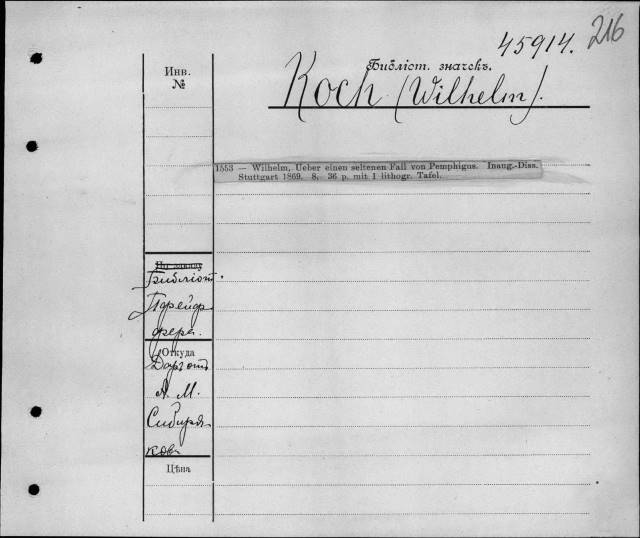 45914.
216
Библіот. значекъ.
Инв.
№
Koch (Wilhelm).
1553 — Wilhelm, Ueber einen seltenen Fall von Pemphigus. Inaug.-Diss.
Stuttgart 1869. 8, 36 p. mit 1 lithogr. Tafel.
Библіот.
Пфейф-
фера.
Откуда
А. М.
Сибиря-
ковъ
Цѣна